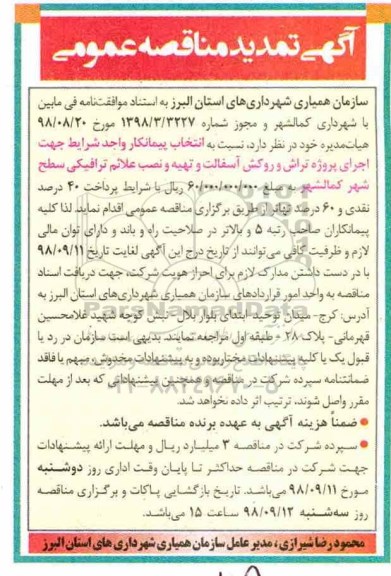 آگهی تمدید مناقصه عمومی
سازمان همیاری شهرداری‌های استان البرز به استناد موافقت‌نامه فی مابین
با شهرداری کمالشهر و مجوز شماره ۱۳۹۸/۳/۳۲۲۷ مورخ ۹۸/۰۸/۲۰
هیات‌مدیره خود در نظر دارد، نسبت به انتخاب پیمانکار واجد شرایط جهت
اجرای پروژه تراش و روکش آسفالت و تهیه و نصب علائم ترافیکی سطح
شهر کمالشهر به مبلغ ۶۰/۰۰۰/۰۰۰/۰۰۰ ریال با شرایط پرداخت ۴۰ درصد
نقدی و ۶۰ درصد تهاتر از طریق برگزاری مناقصه عمومی اقدام نماید. لذا کلیه
پیمانکاران صاحب رتبه ۵ و بالاتر در صلاحیت راه و باند و دارای توان مالی
لازم و ظرفیت کافی می‌توانند از تاریخ درج این آگهی لغایت تاریخ ۹۸/۰۹/۱۱
با در دست داشتن مدارک لازم برای احراز هویت شرکت، جهت دریافت اسناد
مناقصه به واحد امور قراردادهای سازمان همیاری شهرداری‌های استان البرز به
آدرس: کرج- میدان توحید- ابتدای بلوار بلال- نبش کوچه شهید غلامحسین
قهرمانی- پلاک ۲۸ - طبقه اول مراجعه نمایند. بدیهی است سازمان در رد یا
قبول یک یا کلیه پیشنهادات مختار بوده و به پیشنهادات مخدوش، مبهم یا فاقد
ضمانتنامه سپرده شرکت در مناقصه و همچنین پیشنهاداتی که بعد از مهلت
مقرر واصل شوند، ترتیب اثر داده نخواهد شد.
● ضمناً هزینه آگهی به عهده برنده مناقصه می‌باشد.
● سپرده شرکت در مناقصه ۳ میلیارد ریال و مهلت ارائه پیشنهادات
جهت شرکت در مناقصه حداکثر تا پایان وقت اداری روز دوشنبه
مورخ ۹۸/۰۹/۱۱ می‌باشد. تاریخ بازگشایی پاکات و برگزاری مناقصه
روز سه‌شنبه ۹۸/۰۹/۱۲ ساعت ۱۵ می‌باشد.
محمود رضا شیرازی ، مدیر عامل سازمان همیاری شهرداری های استان البرز